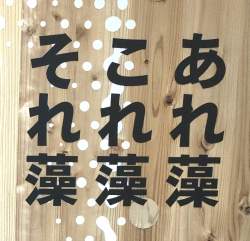 あれ藻
これ藻
それ藻